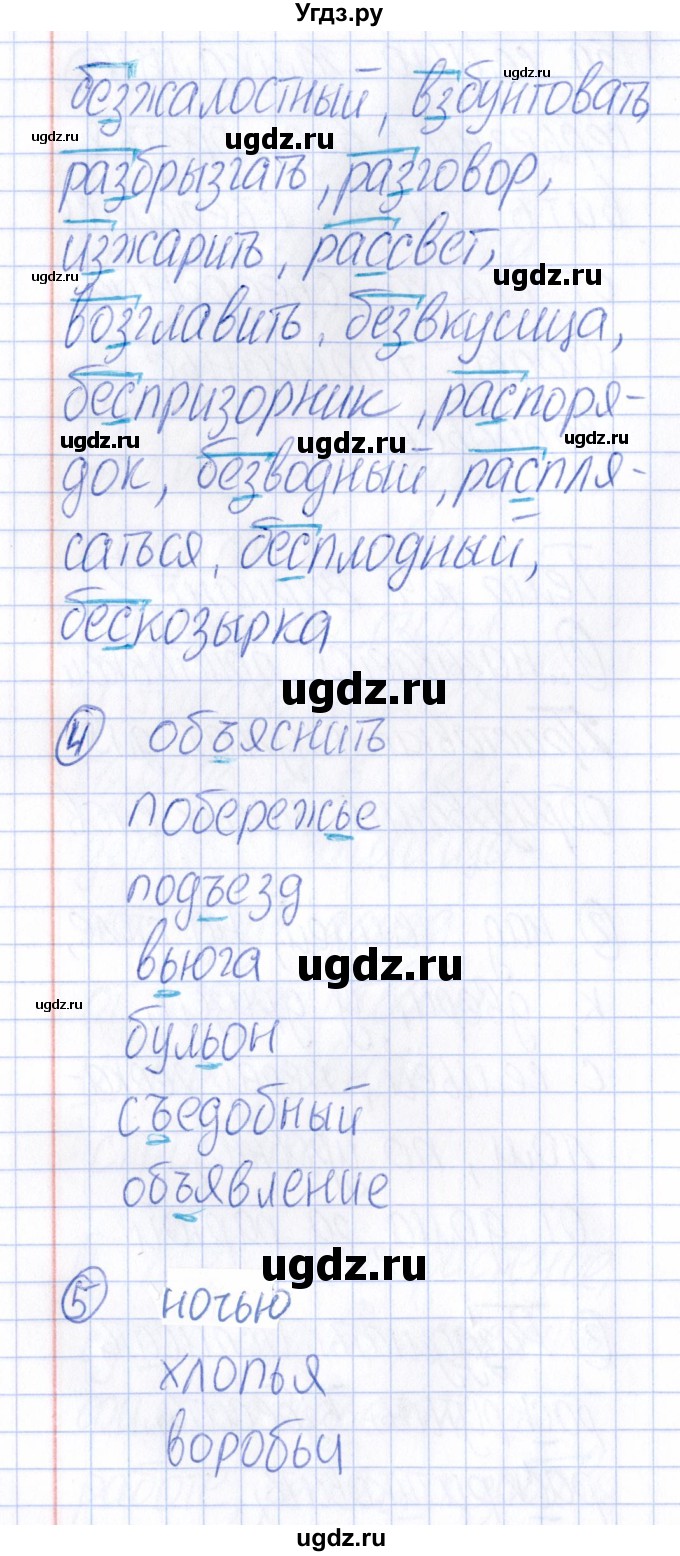 Угдз.ру
безжалостный, взбунтовать,
ugdz.ru
ugdz.ru
ugdz.ru
разбрызгать, разговор,
изжарить, рассвет,
ugdz.ru
ugdz.ru
возглавить, безвкусица,
беспризорник, распоря-
ugdz.ru
ugdz.ru
ugdz.ru
док, безводный, распля-
саться, бесплодный,
бескозырка
ugdz.ru
4 объяснить
побережье
подъезд
вьюга
ugdz.ru
ugdz.ru
бульон
съедобный
объявление
ugdz.ru
5 ночью
хлопья
воробьи
ugdz.ru